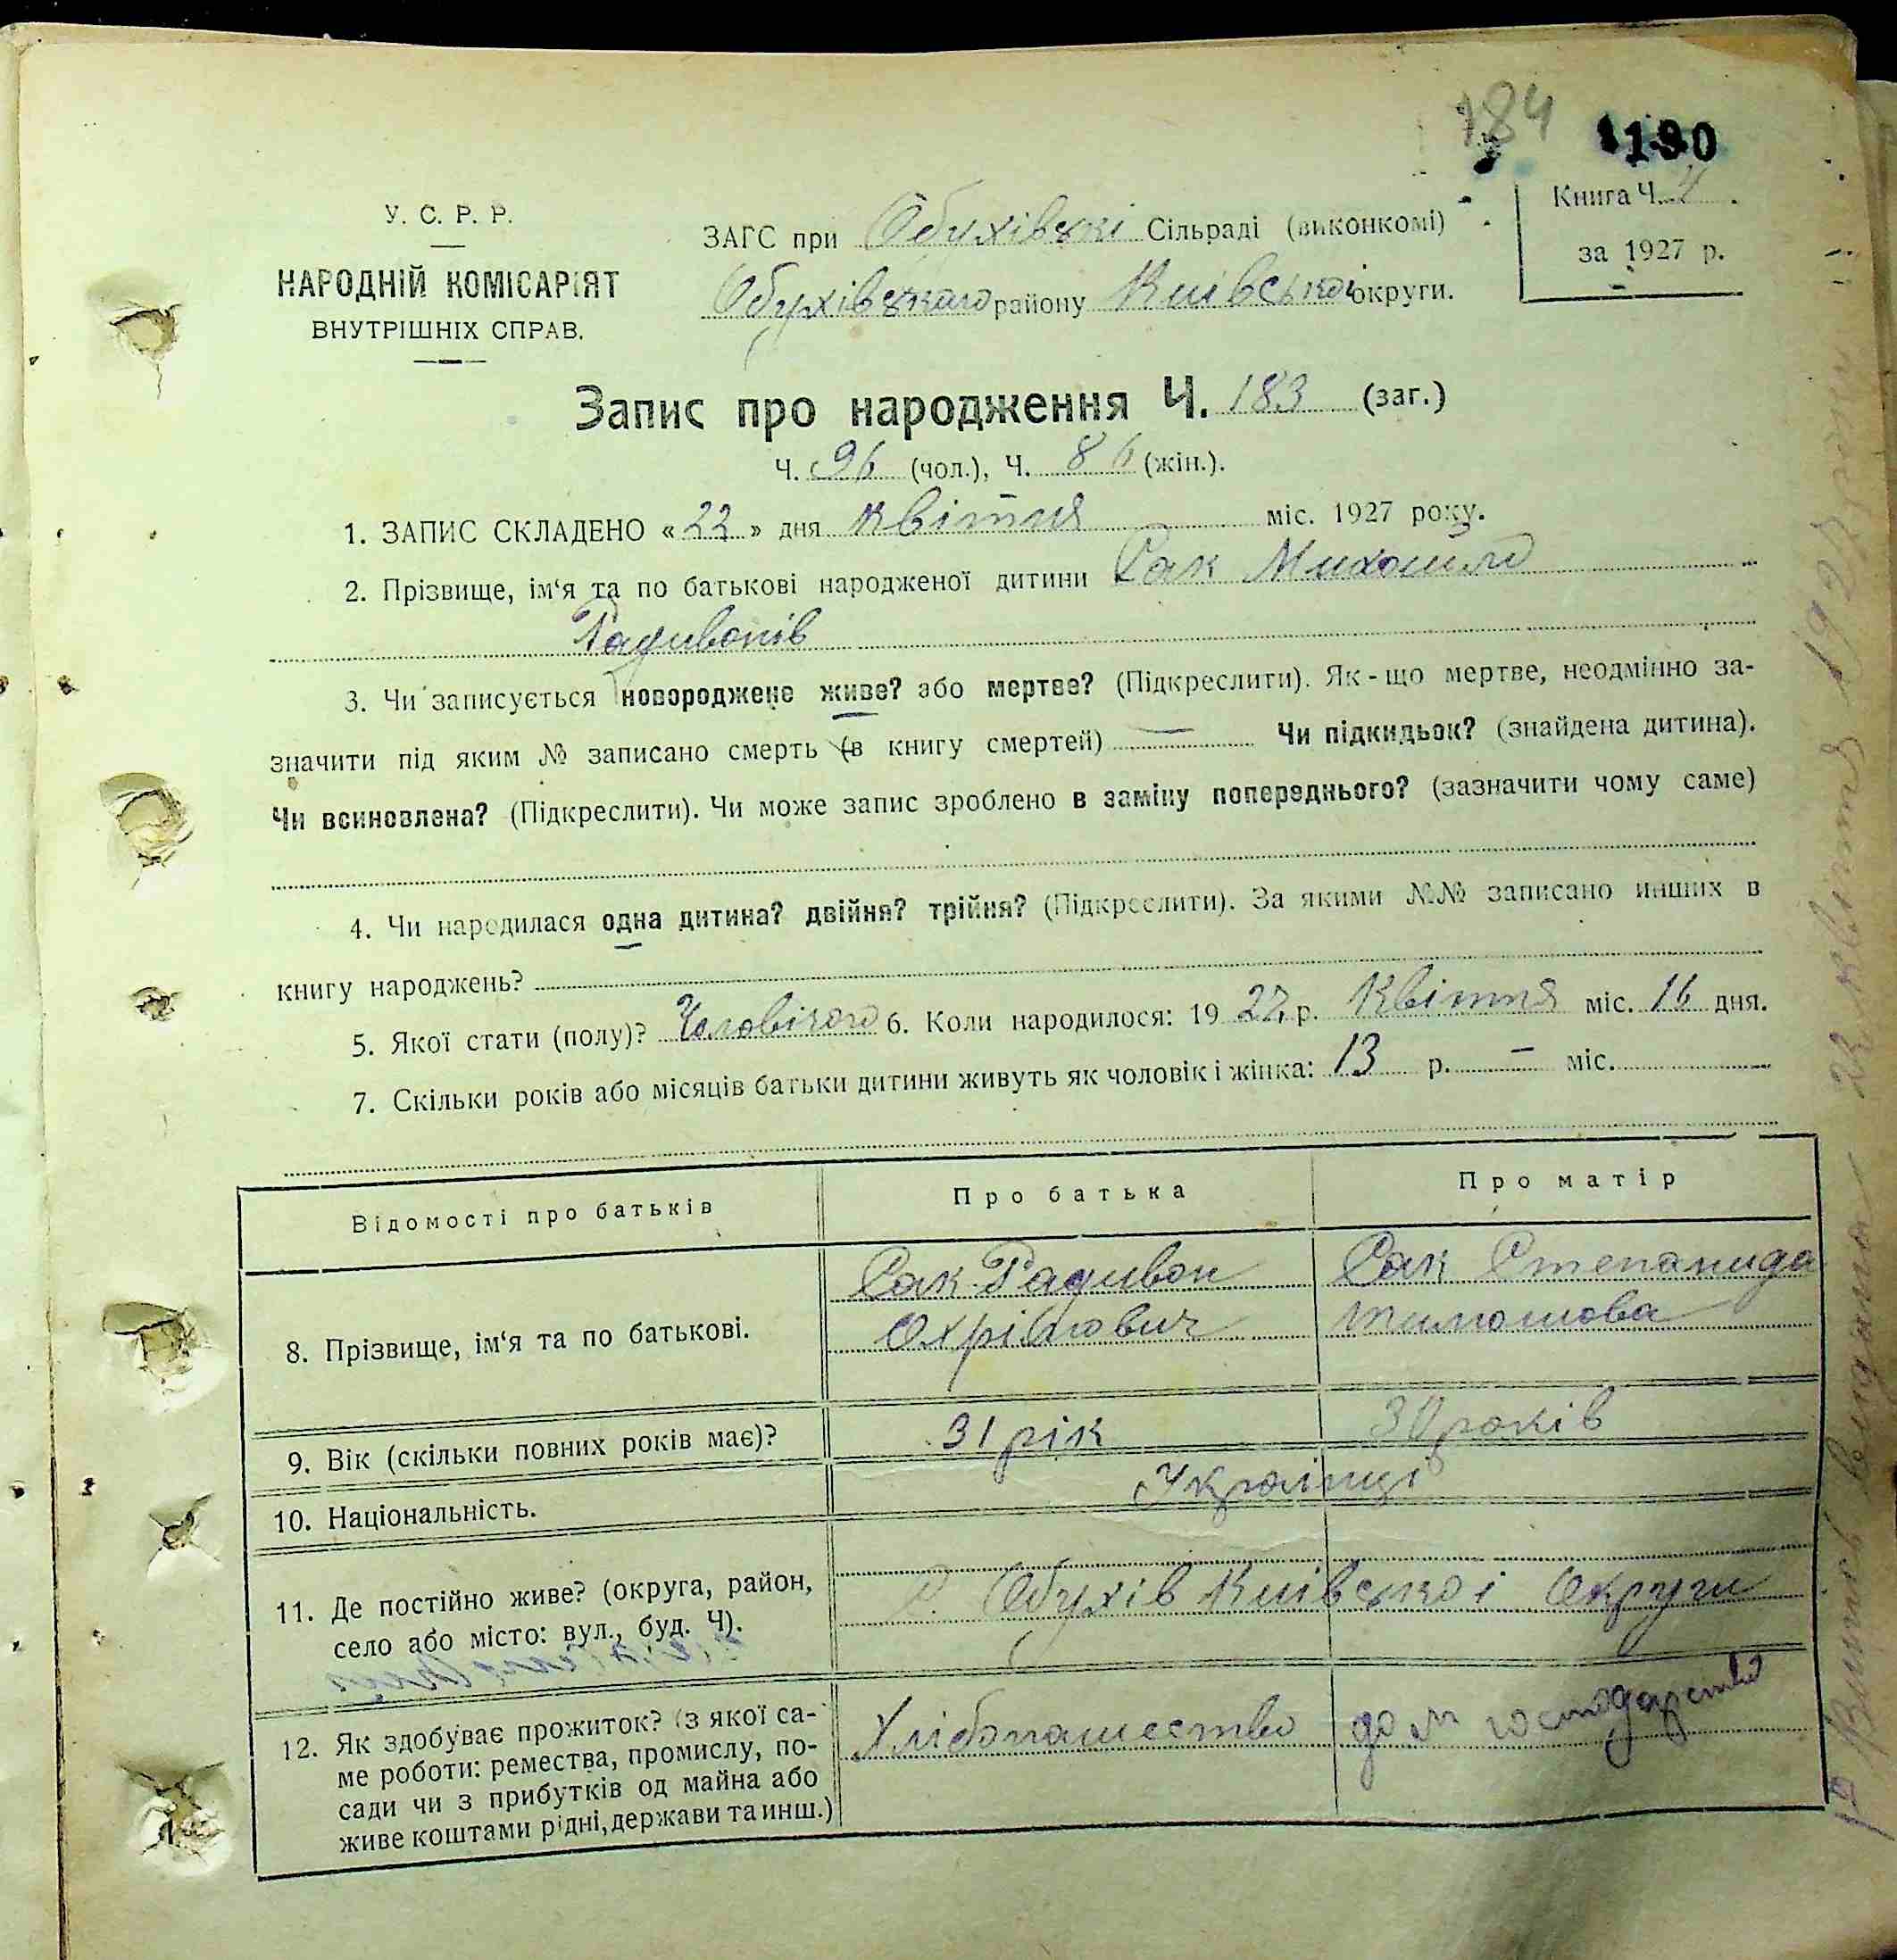 184
190
У. С. Р. Р.
НАРОДНІЙ КОМІСАРІЯТ
ВНУТРІШНІХ СПРАВ.
ЗАГС при Обухівскі Сільраді (виконкомі)
Обухівского району Київської округи.
Книга Ч.
за 1927 р.
Запис про народження Ч. 183 (заг.)
Ч. 96 (чол.), Ч. 86 (жін.).
1. ЗАПИС СКЛАДЕНО «22» дня квітня міс. 1927 року.
2. Прізвище, ім‘я та по батькові народженої дитини Сак Михайло
Радивонів
3. Чи записується новороджене живе? або мертве? (Підкреслити). Як-що мертве, неодмінно за-
значити під яким № записано смерть (в книгу смертей) — Чи підкидьок? (знайдена дитина).
Чи всиновлена? (Підкреслити). Чи може запис зроблено в заміну попереднього? (зазначити чому саме)
4. Чи народилася одна дитина? двійня? трійня? (Підкреслити). За якими №№ записано инших в
книгу народжень?
5. Якої стати (полу)? Чоловічого 6. Коли народилося: 1927 р. Квітня міс. 16 дня.
7. Скільки років або місяців батьки дитини живуть як чоловік і жінка: 13 р. — міс.
Відомості про батьків
Про батька
Про матір
8. Прізвище, ім‘я та по батькові.
Сак Радивон
Охрімович
Сак Степанида
Тимошова
9. Вік (скільки повних років має)?
31 рік
30 років
10. Національність.
Українці
11. Де постійно живе? (округа, район,
село або місто: вул., буд. Ч).
С. Обухів Київскої Округи
12. Як здобуває прожиток? (з якої са-
ме роботи: ремества, промислу, по-
сади чи з прибутків од майна або
живе коштами рідні, держави та инш.)
Хлібопашество
дом господарство
Витяг видано 22 квітня 1927 року